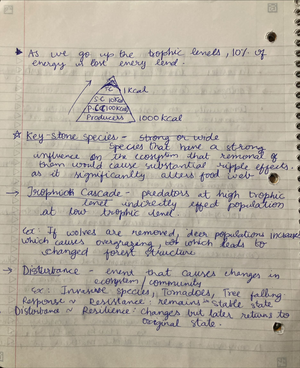 * As we go up the trophic levels, 10% of
energy is lost every level.
TC 1 kcal
S.C 10 kcal
P.C 100 kcal
Producers 1000 kcal
☆ Key Stone Species - strong or wide
species that have a strong
influence on the ecosystem that removal of
them would cause substantial ripple effects
as it significantly alters food web
→ Trophic Cascade - predators at high trophic
level indirectly effect population
at low trophic level.
Ex: If wolves are removed, deer populations increases
which causes overgrazing, which leads to
changed forest structure
→ Disturbance - event that causes changes in
ecosystem/community
Ex: Invasive species, Tornadoes, Tree falling
Response ~ Resistance: remains in stable state
Disturband ~ Resilience: changes but later returns to
original state.